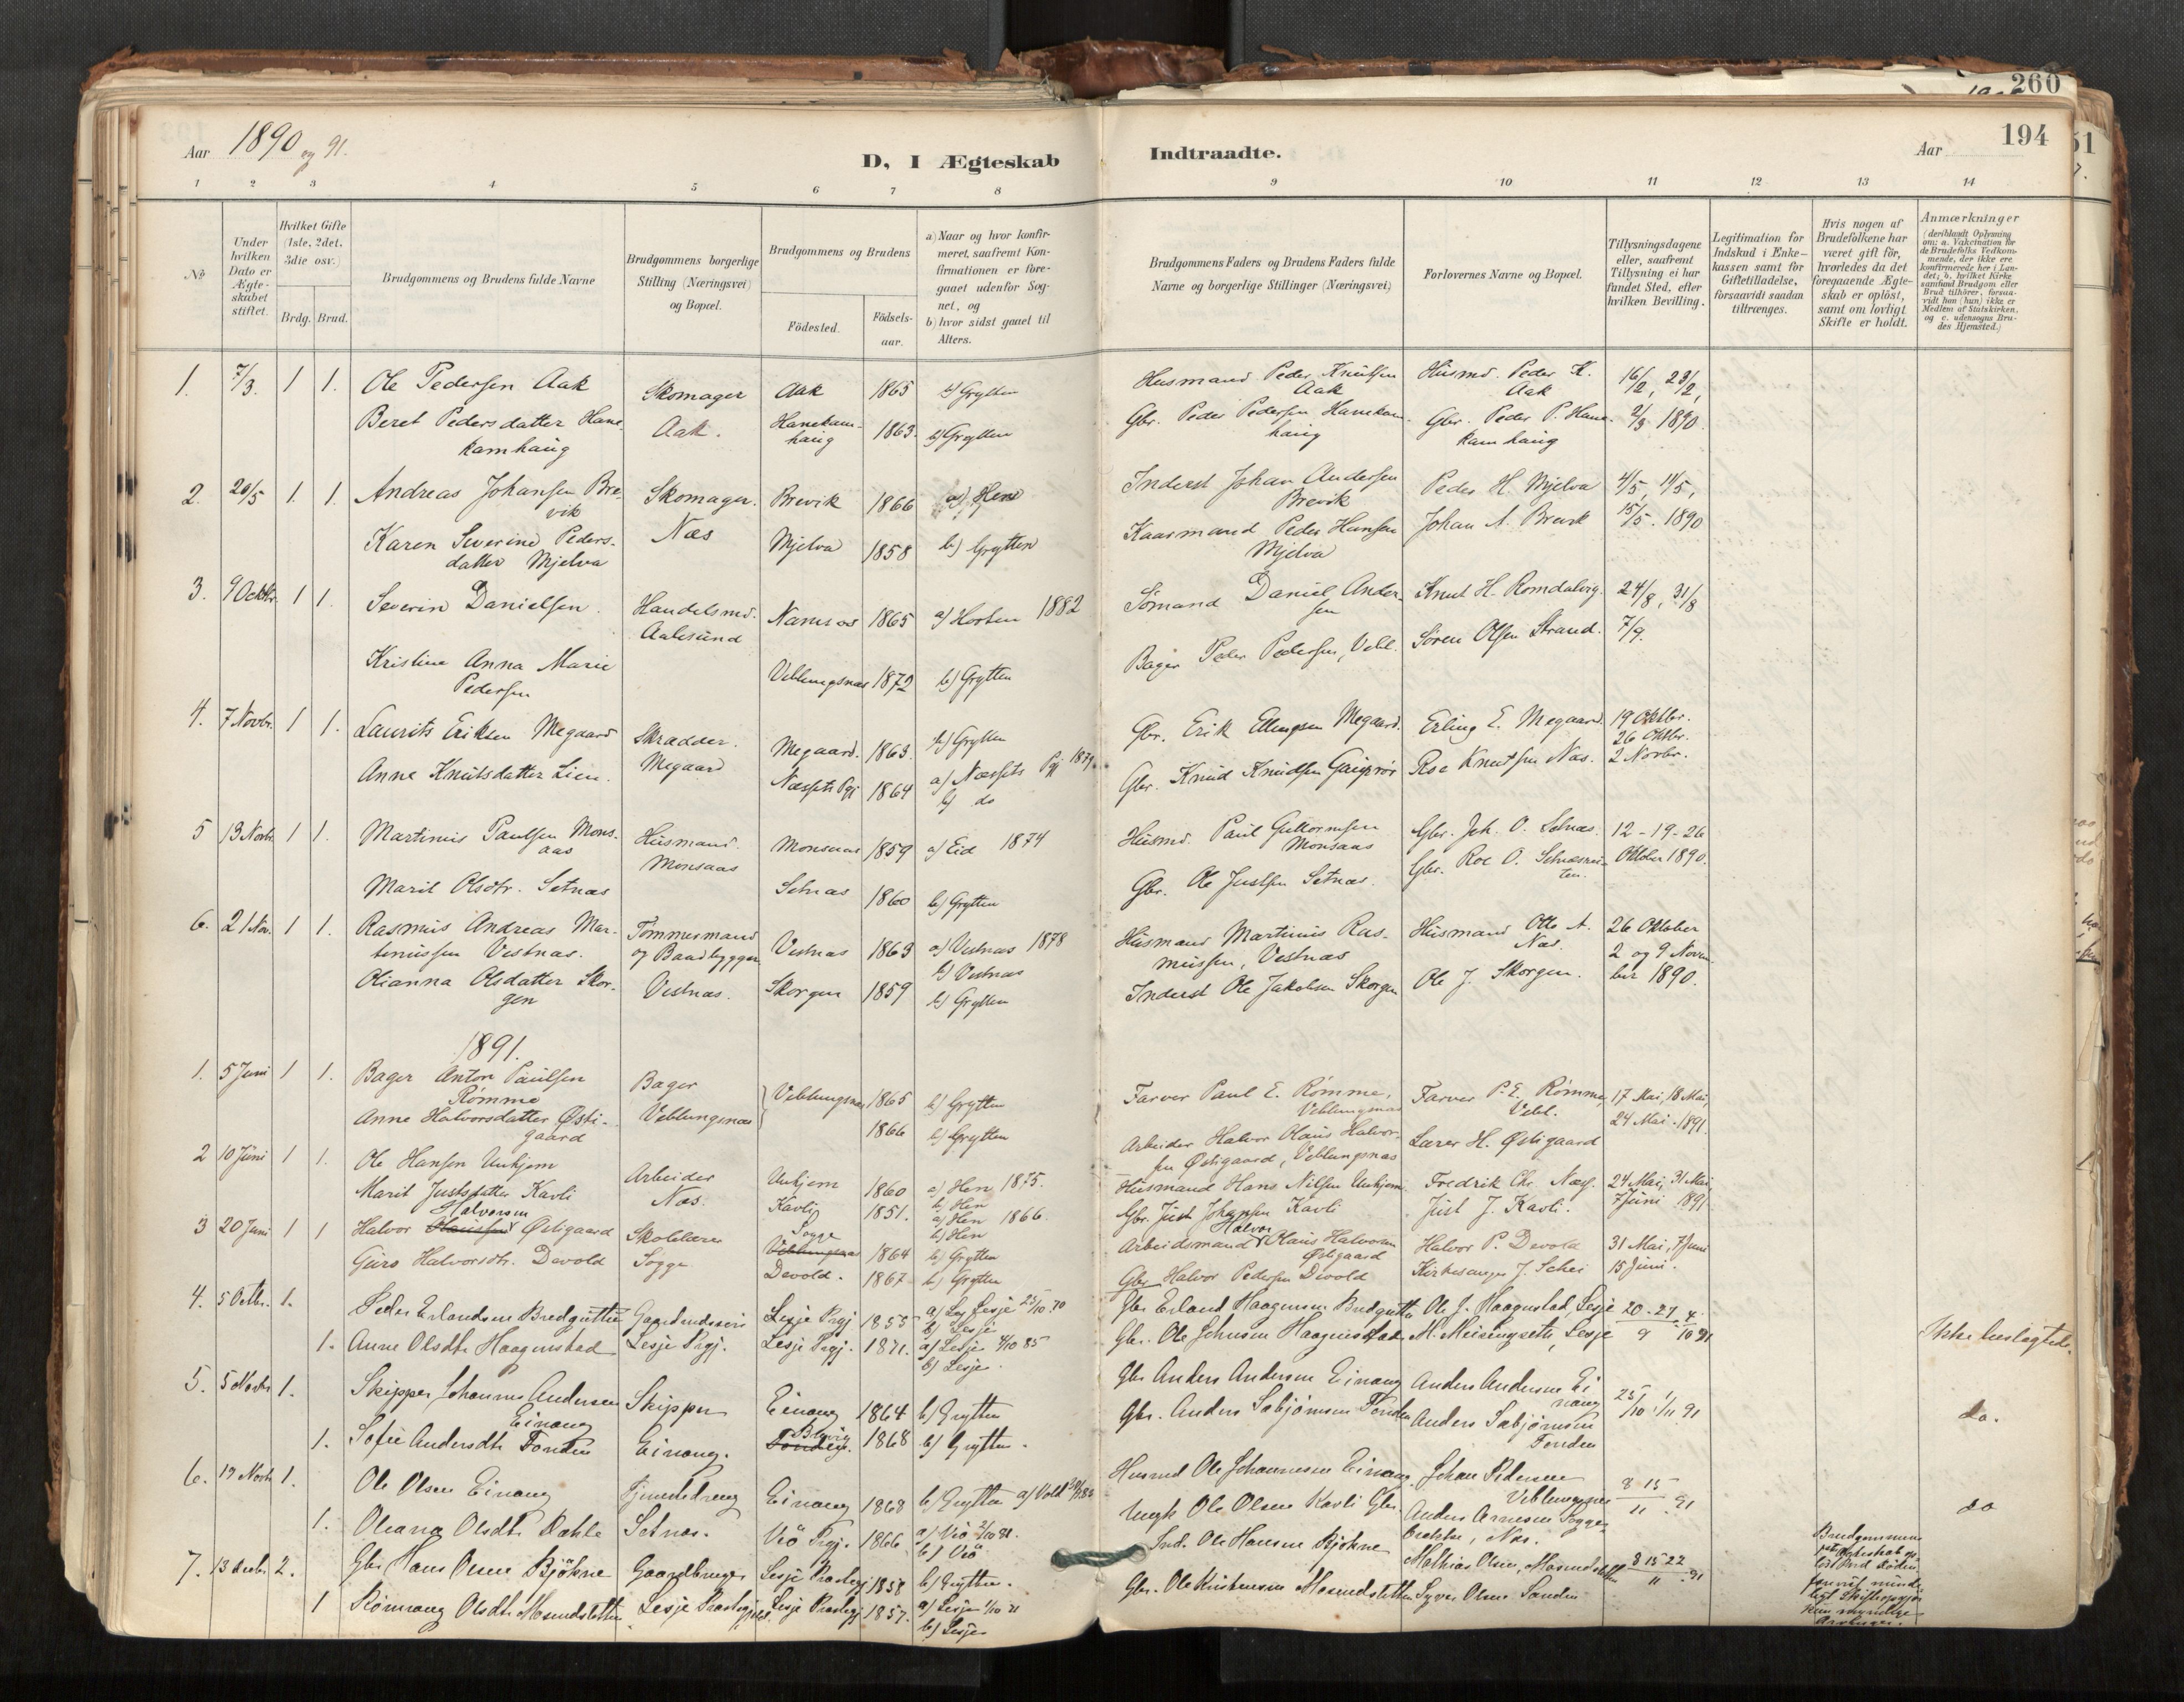 260
194
Aar 1890 og 91.
D, I Ægteskab Indtraadte.
Aar
1 2 3 4 5 6 7 8 9 10 11 12 13 14
No
Under hvilken Dato er Ægteskabet stiftet.
Hvilket Gifte (1ste, 2det, 3die osv.)
Brdg. Brud.
Brudgommens og Brudens fulde Navne
Brudgommens borgerlige Stilling (Næringsvei) og Bopæl.
Brudgommens og Brudens
Födested.
Födsels-aar.
a) Naar og hvor konfirmeret, saafremt Konfirmationen er foregaaet udenfor Sognet, og
b) hvor sidst gaaet til Alters.
Brudgommens Faders og Brudens Faders fulde Navne og borgerlige Stillinger (Næringsvei)
Forlovernes Navne og Bopæl.
Tillysningsdagene eller, saafremt Tillysning ei har fundet Sted, efter hvilken Bevilling.
Legitimation for Indskud i Enkekassen samt for Giftetilladelse, forsaavidt saadan tiltrænges.
Hvis nogen af Brudefolkene har været gift för, hvorledes da det foregaaende Ægteskab er oplöst, samt om lovligt Skifte er holdt.
Anmærkninger (deriblandt Oplysning om: a. Vakcination for de Brudefolks Vedkommende, der ikke ere konfirmerede her i Landet; b. hvilket Kirkesamfund Brudgom eller Brud tilhörer, forsaavidt han (hun) ikke er Medlem af Statskirken, og c. udensogns Brudes Hjemsted.)
1. 7/3. 1 1. Ole Pedersen Aak Skomager Aak 1865 b) Grytten Husmand Peder Knutsen Aak Husmd. Peder K. Aak 16/2, 23/2,
Beret Pedersdatter Hanekamhaug Aak. Hanekamhaug 1863. b) Grytten Gbr. Peder Pedersen Hanekamhaug Gbr. Peder P. Hanekamhaug 2/3 1890.
2. 20/5 1. 1. Andreas Johansen Brevik Skomager. Brevik 1866 a) Hen Inderst Johan Andersen Brevik Peder H. Mjelva 4/5, 11/5,
Karen Severine Pedersdatter Mjelva Næs Mjelva 1858 b) Grytten Kaarmand Peder Hansen Mjelva Johan A. Brevik 15/5. 1890
3. 9 Oktbr. 1 1. Severin Danielsen. Handelsmd. Aalesund Namsos 1865 a) Horten 1882 Sömand Daniel Andersen Knut H. Romdalvig. 24/8, 31/8
Kristine Anna Marie Pedersen Veblungsnæs 1872 b) Grytten Bager Peder Pedersen, Vebl. Sören Olsen Strand. 7/9.
4. 7 Novbr. 1 1. Laurits Eriksen Megaard Skrædder. Megaard. 1863. b) Grytten Gbr. Erik Ellingsen Megaard. Erling E. Megaard. 19 Oktbr. 26 Oktbr.
Anne Knutsdatter Lien. Megaard Næssets Pgj 1864 a) Næssets Pgj 1879 b) do Gbr. Knud Knudsen Roe Knutsen Næs. 2 Novbr.
5 13 Novbr. 1 1. Martinus Paulsen Monsaas Husmand. Monsaas 1859 a) Eid 1874 Husmd. Paul Guttormsen Monsaas Gbr. Joh. O. Setnæs. 12-19-26
Marit Olsdtr. Setnæs Monsaas Setnæs 1860 b) Grytten Gbr. Ole Justsen Setnæs. Gbr. Roe O. Oktober 1890.
6. 21 Nov. 1 1. Rasmus Andreas Martinussen Vestnæs. Tømmermand og Baadbygger Vestnæs 1863 a) Vestnæs 1878 b) Vestnæs Husmand Martinus Rasmussen, Vestnæs Husmand Otto A. Næs. 26 Oktober
Olianna Olsdatter Skorgen Vestnæs. Skorgen 1859 b) Grytten Inderst Ole Jakobsen Skorgen Ole J. Skorgen. 2 og 9 November 1890.
1891.
1. 5 Juni 1 1. Bager Anton Paulsen Römme Bager Veblungsnæs 1865 b) Grytten Farver Paul E. Römme, Veblungsnæs Farver P. E. Römme, Vebl. 17 Mai, 18 Mai,
Anne Halvorsdatter Østigaard Veblungsnæs 1866 b) Grytten Arbeider Halvor Olaus Halvorsen Østigaard, Veblungsnæs Lærer H. Østigaard 24 Mai 1891.
2 10 Juni 1 1. Ole Hansen Unhjem Arbeider Unhjem 1860 a) Hen 1875. b) Hen Husmand Hans Nilsen Unhjem. Fredrik Chr. Næs. 24 Mai, 31 Mai,
Marit Justsdatter Kavli Næs. Kavli 1851. a) Hen 1866 b) Hen Gbr. Just Johansen Kavli Just J. Kavli. 7 Juni 1891
3 20 Juni 1 1 Halvor Halvorsen Østigaard Skolelærer Sogge Veblungsnæs 1864 b) Grytten Arbeidsmand Halvor Olaus Halvorsen Østigaard Halvor P. Devold 31 Mai, 7 Juni
Guro Halvorsdtr. Devold Sogge Devold. 1867 b) Grytten Gbr Halvor Pedersen Devold Kirkesanger J. Schei 15 Juni.
4. 5 Octbr. 1. Peder Erlandsen Bredgutten Lesje Prgj 1855 a) Lesje 25/10 70 b) Lesje Gbr Erland Haagensen Bredgutten Ole J. Haagenstad, Lesje 20-27/9 4/10 91
1. Anne Olsdtr Haagenstad Lesje Prgj. Lesje Prgj. 1871. a) Lesje 4/10 85 b) Lesje. Gbr. Ole Johnsen Haagenstad M. Lesje Ikke beslægtede.
5. 5 Novbr 1. Skipper Johannes Andersen Einang Skipper Einang 1864 b) Grytten Gbr Anders Andersen Einang Anders Andersen Einang 25/10 1/11 91 do.
1. Sofie Andersdtr Fonden Einang. 1868 b) Grytten. Gbr. Anders Sæbjörnsen Fonden Anders Sæbjörnsen Fonden
6. 17 Novbr 1. Ole Olsen Einang Tjenestedreng Einang 1868 b) Grytten a) Vold Husmd Ole Johannesen Einang. Johan Pedersen Veblungsnæs 8 15/11 91 do
1. Oleana Olsdtr Dahle Setnæs. Veö Prgj. 1866 a) Veö b) Veö Ole Olsen Kavli Gbr. Anders Arnesen Sogge, Næs.
7. 13 Decbr. 2. Gbr Hans Olsen Bjökne Gaardbruger Lesje Præstegj 1858 b) Grytten. Ind. Ole Hansen Bjökne Mathias Olsen, 8 15 22/11 91 Brudgommens
1 Römnaug Olsdtr Mosenstetten Lesje Præstegjeld Lesje Præstegj 1857. a) Lesje b) Lesje Gbr. Ole Kristensen Syver Olsen Sandin